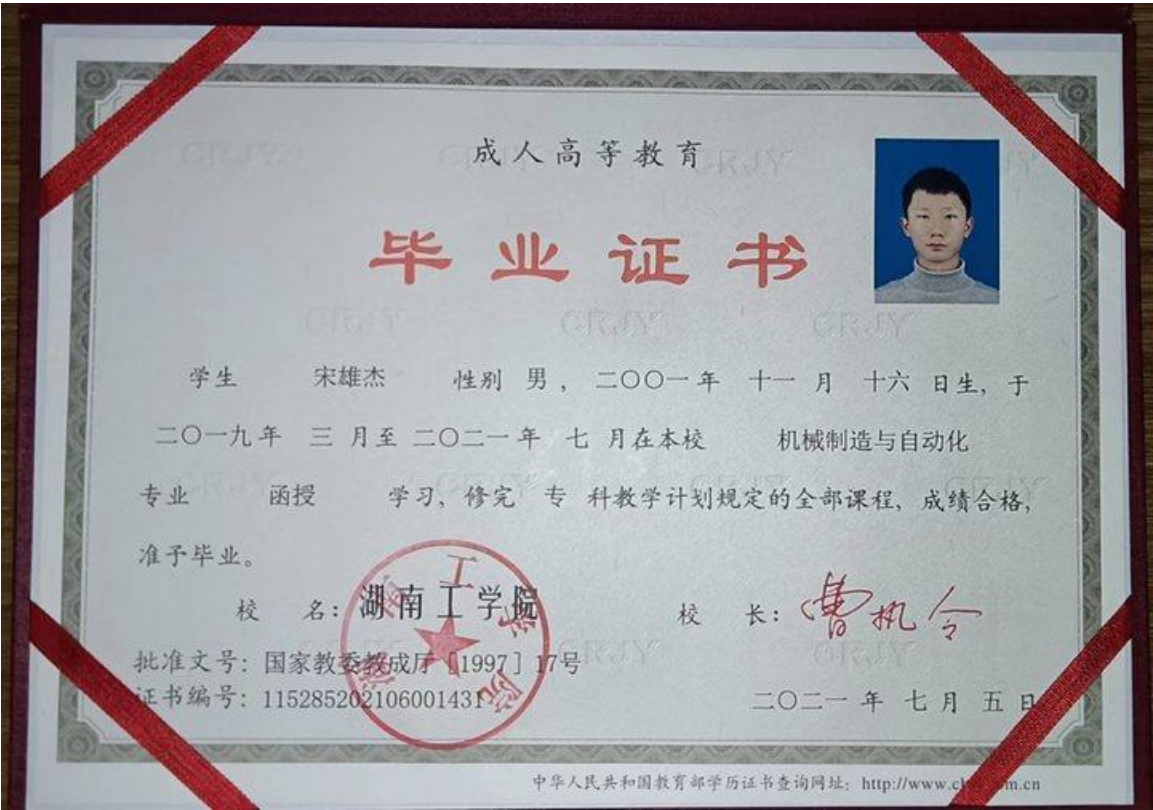 成人高等教育
毕业证书
学生 宋雄杰 性别 男，二〇〇一年 十一 月 十六 日生，于
二〇一九年 三 月至 二〇二一年 七 月在本校 机械制造与自动化
专业 函授 学习，修完 专 科教学计划规定的全部课程，成绩合格，
准予毕业。
校 名：湖南工学院 校 长：曹执令
湖南工学院
批准文号：国家教委教成厅［1997］17号
证书编号：115285202106001431
二〇二一 年 七 月 五 日
中华人民共和国教育部学历证书查询网址：http://www.ch
m.cn
CRJY